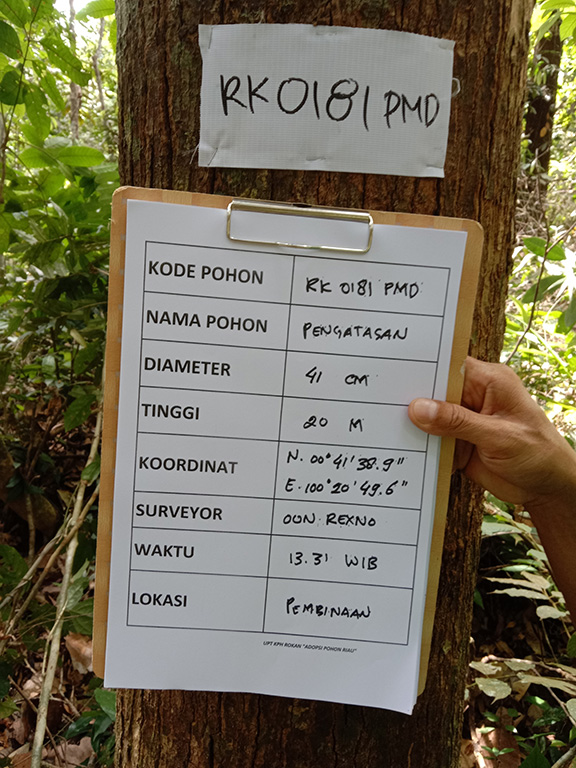 RK 0181 PMD
KODE POHON RK 0181 PMD
NAMA POHON PENGATASAN
DIAMETER 41 CM
TINGGI 20 M
KOORDINAT N. 00° 41' 38.9"
E. 100° 20' 49.6"
SURVEYOR OON. REXNO
WAKTU 13.31 WIB
LOKASI PEMBINAAN
UPT KPH ROKAN "ADOPSI POHON RIAU"